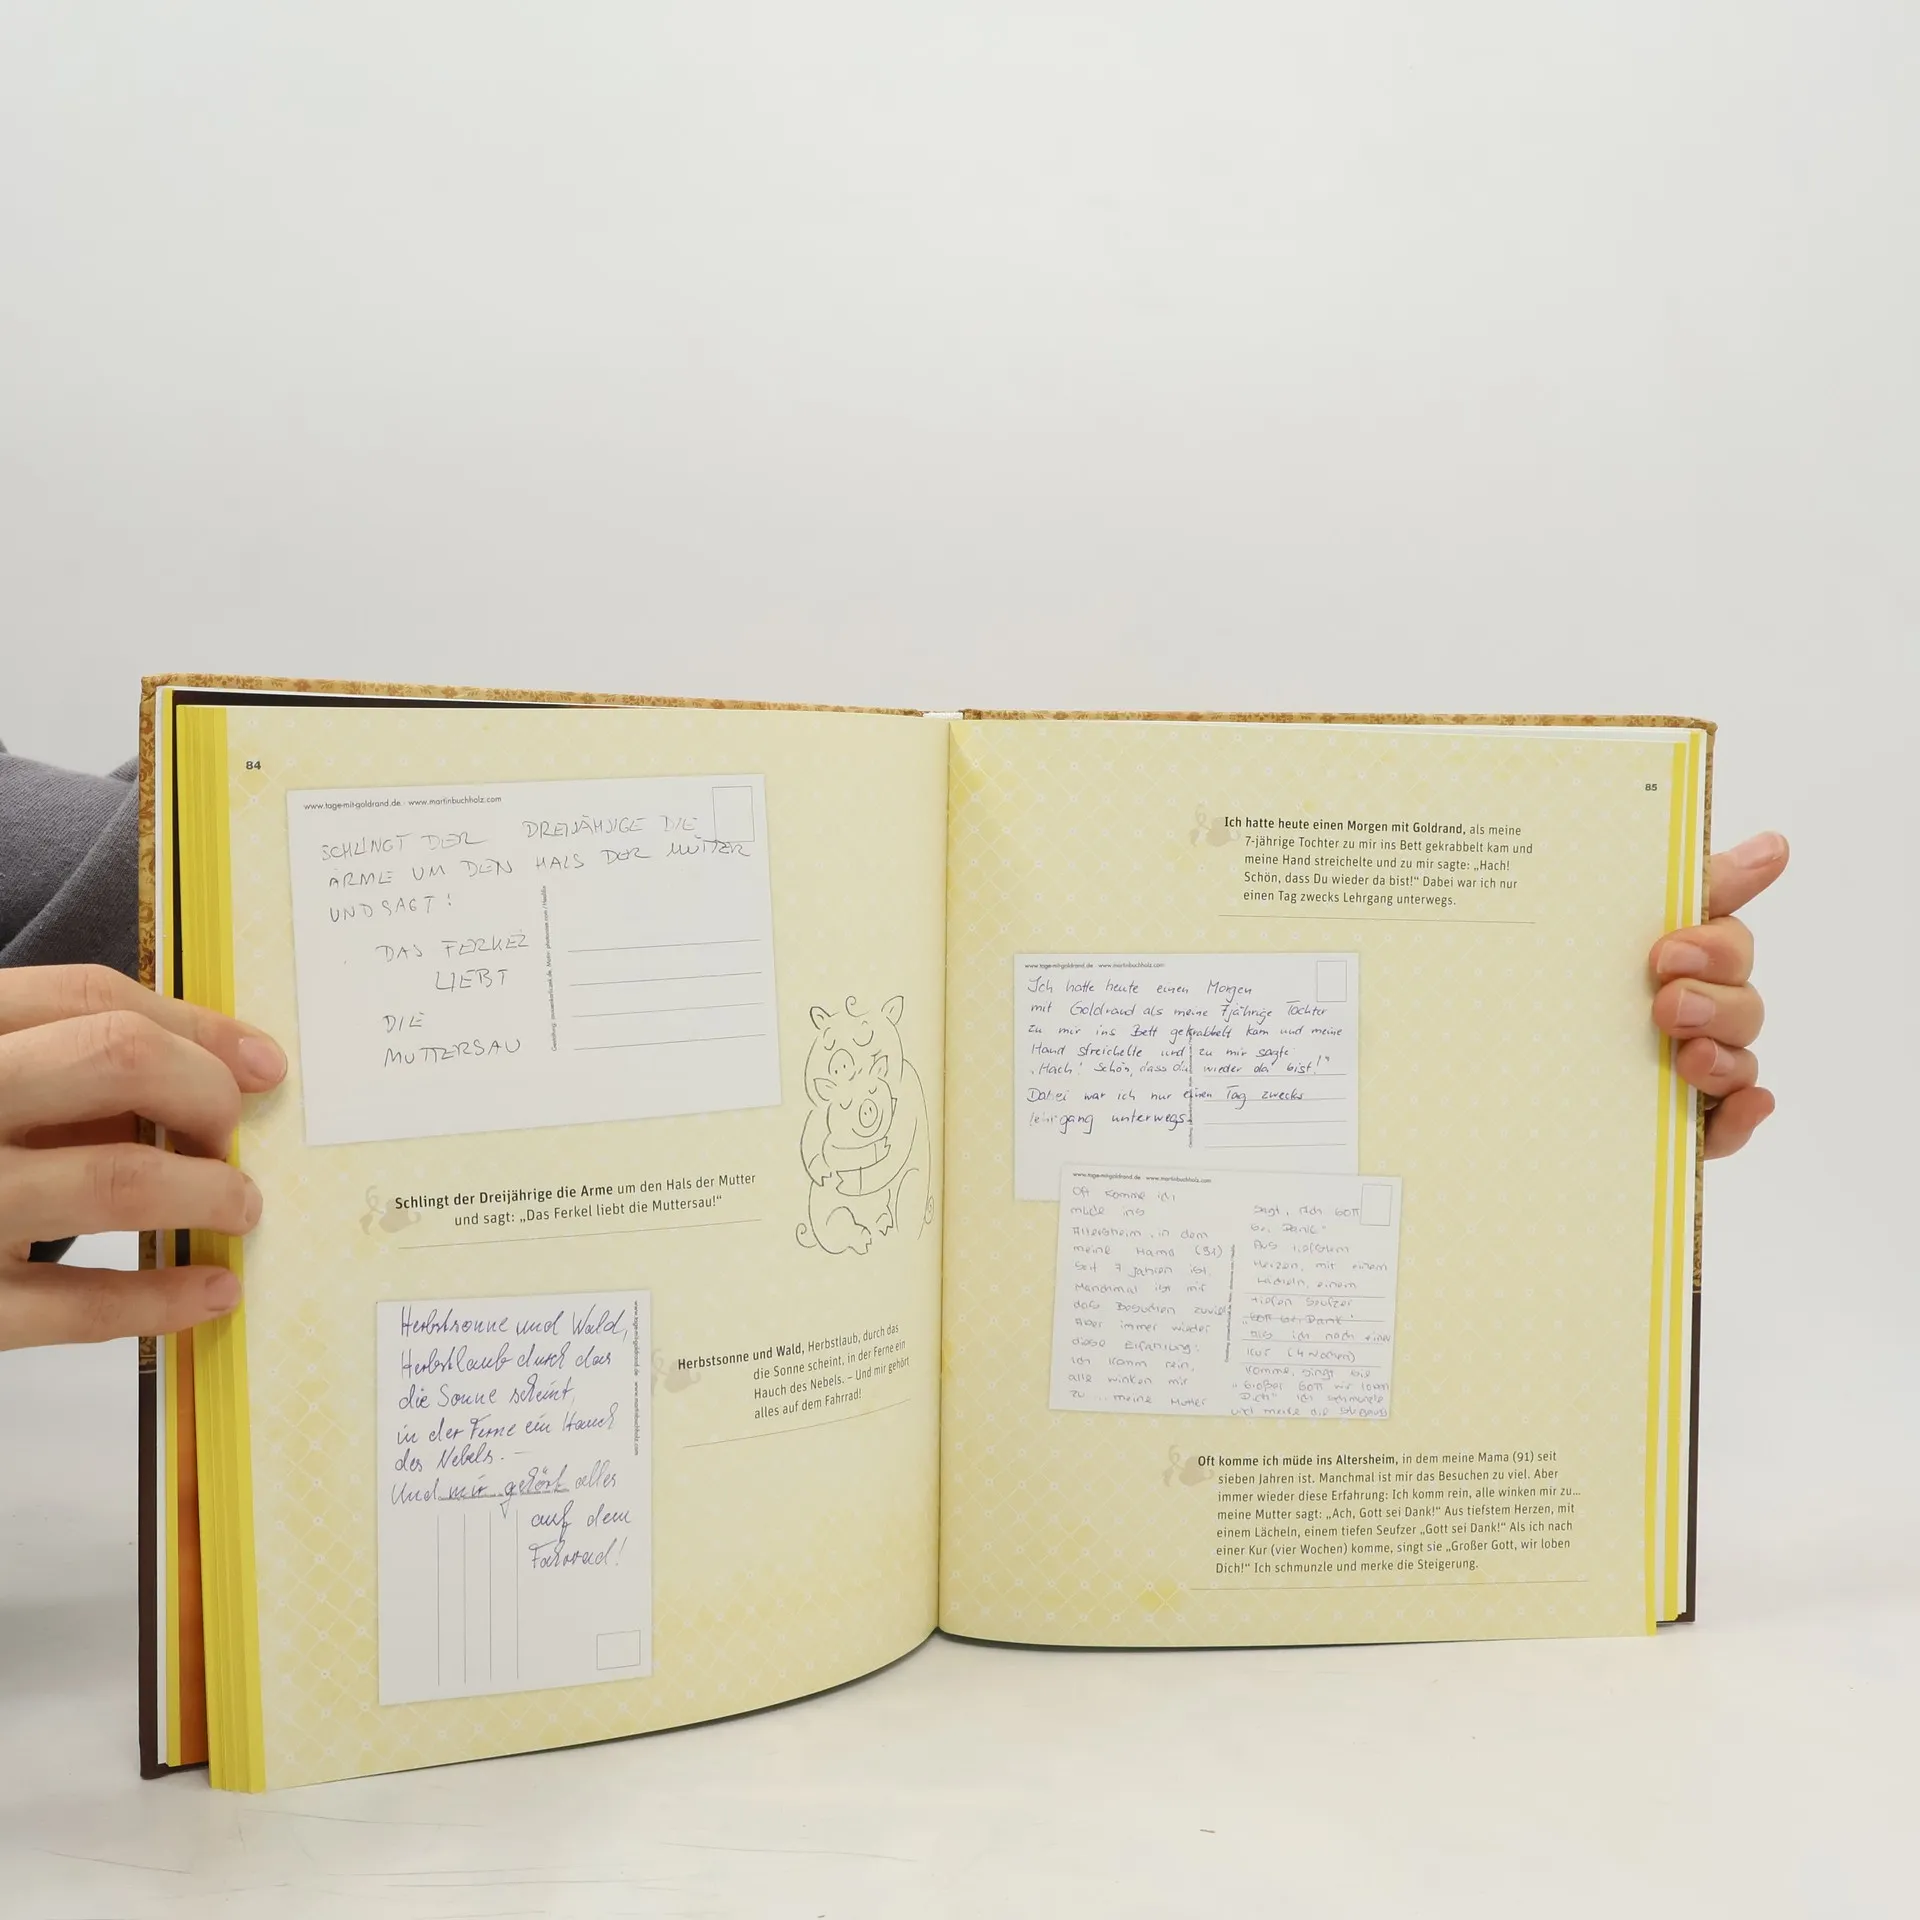 84
www.tage-mit-goldrand.de · www.martinbuchholz.com
SCHLINGT DER DREIJÄHRIGE DIE
ARME UM DEN HALS DER MUTTER
UND SAGT:
DAS FERKEL
LIEBT
DIE
MUTTERSAU
Schlingt der Dreijährige die Arme um den Hals der Mutter
und sagt: „Das Ferkel liebt die Muttersau!“
Herbstsonne und Wald,
Herbstlaub durch das
die Sonne scheint,
in der Ferne ein Hauch
des Nebels. –
Und mir gehört alles
auf dem
Fahrrad!
www.tage-mit-goldrand.de · www.martinbuchholz.com
Herbstsonne und Wald, Herbstlaub, durch das
die Sonne scheint, in der Ferne ein
Hauch des Nebels. – Und mir gehört
alles auf dem Fahrrad!
85
Ich hatte heute einen Morgen mit Goldrand, als meine
7-jährige Tochter zu mir ins Bett gekrabbelt kam und
meine Hand streichelte und zu mir sagte: „Hach!
Schön, dass Du wieder da bist!“ Dabei war ich nur
einen Tag zwecks Lehrgang unterwegs.
www.tage-mit-goldrand.de · www.martinbuchholz.com
Ich hatte heute einen Morgen
mit Goldrand als meine 7jährige Tochter
zu mir ins Bett gekrabbelt kam und meine
Hand streichelte und zu mir sagte:
„Hach! Schön, dass du wieder da bist!“
Dabei war ich nur einen Tag zwecks
Lehrgang unterwegs.
www.tage-mit-goldrand.de · www.martinbuchholz.com
Oft komme ich
müde ins
Altersheim, in dem
meine Mama (91)
seit 7 Jahren ist.
Manchmal ist mir
das Besuchen zuviel
Aber immer wieder
diese Erfahrung:
Ich komm rein,
alle winken mir
zu ... meine Mutter
sagt, Ach Gott
sei Dank"
Aus tiefstem
Herzen, mit einem
Lächeln, einem
tiefen Seufzer
„Gott sei Dank"
Als ich nach einer
Kur (4 Wochen)
komme, singt sie
„Großer Gott wir loben
Dich" Ich schmunzle
und merke die Steigerung
Oft komme ich müde ins Altersheim, in dem meine Mama (91) seit
sieben Jahren ist. Manchmal ist mir das Besuchen zu viel. Aber
immer wieder diese Erfahrung: Ich komm rein, alle winken mir zu...
meine Mutter sagt: „Ach, Gott sei Dank!“ Aus tiefstem Herzen, mit
einem Lächeln, einem tiefen Seufzer „Gott sei Dank!“ Als ich nach
einer Kur (vier Wochen) komme, singt sie „Großer Gott, wir loben
Dich!“ Ich schmunzle und merke die Steigerung.